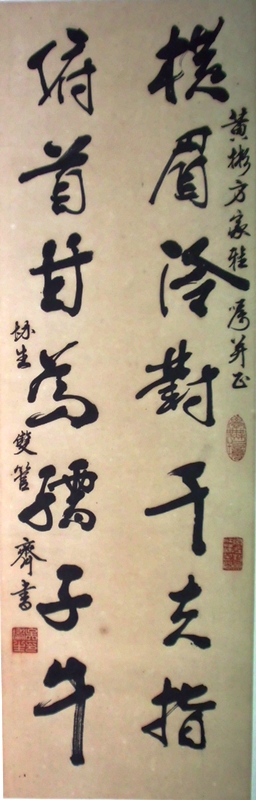 黄彬方家雅囑并正
横眉冷對千夫指
俯首甘為孺子牛
生雙管齊書